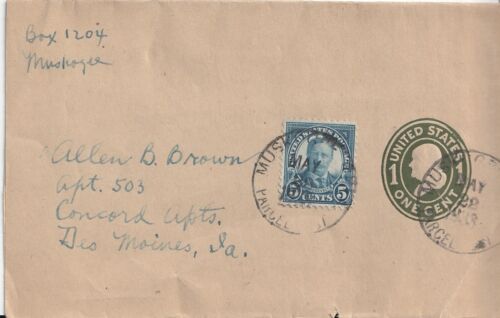 Box 1204
Muskogee
Allen B. Brown
Apt. 503
Concord Apts.
Des Moines, Ia.
UNITED STATES POSTAGE
5 CENTS 5
MUS
MAY
PARCEL
UNITED STATES
1 1
ONE CENT
MUS
MAY
PARCEL